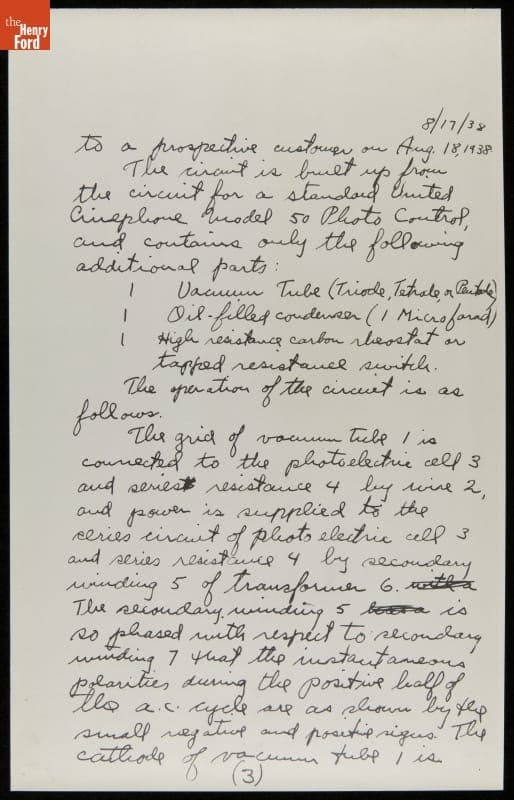 the
Henry
Ford
8/17/38
to a prospective customer on Aug. 18, 1938
The circuit is built up from
the circuit for a standard United
Cinephone Model 50 Photo Control,
and contains only the following
additional parts:
1 Vacuum Tube (Triode, Tetrode, or Pentode)
1 Oil-filled condenser (1 Microfarad)
1 High resistance carbon rheostat or
tapped resistance switch.
The operation of the circuit is as
follows.
The grid of vacuum tube 1 is
connected to the photoelectric cell 3
and series resistance 4 by wire 2,
and power is supplied to the
series circuit of photoelectric cell 3
and series resistance 4 by secondary
winding 5 of transformer 6. with a
The secondary winding 5 is
so phased with respect to secondary
winding 7 that the instantaneous
polarities during the positive half of
the a.c. cycle are as shown by the
small negative and positive signs. The
cathode of vacuum tube 1 is
(3)